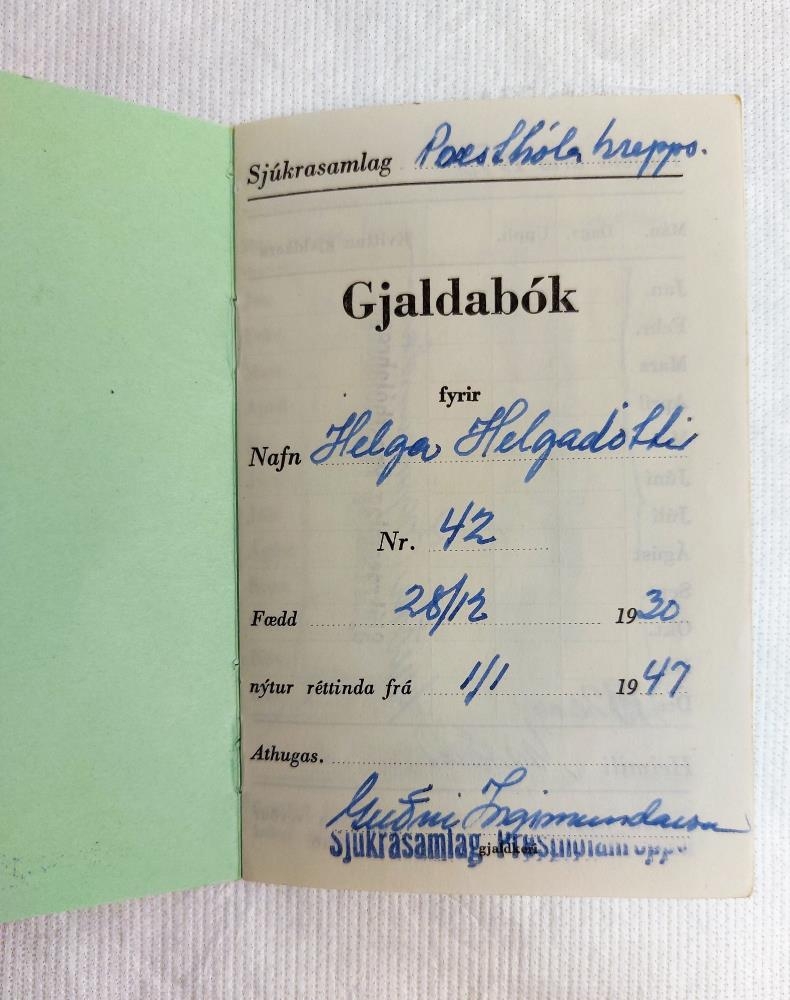 Sjúkrasamlag Presthólahrepps.
Gjaldabók
fyrir
Nafn Helga Helgadóttir
Nr. 42
Fædd 28/12 1930
nýtur réttinda frá 1/1 1947
Athugas.
Guðni Ingimundarson
Sjúkrasamlag Presthólahrepps
gjaldkeri